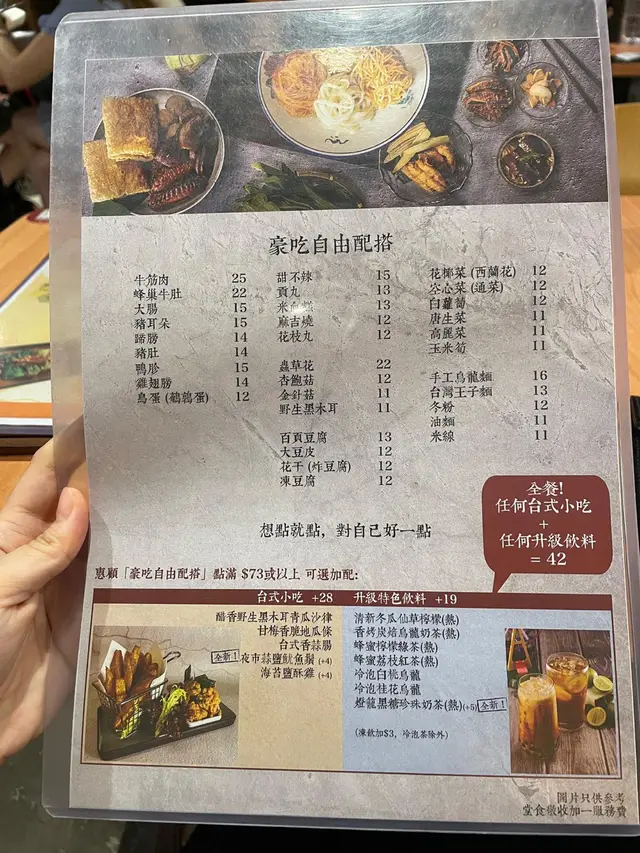 豪吃自由配搭
牛筋肉 25
蜂巢牛肚 22
大腸 15
豬耳朵 15
蹄膀 14
豬肚 14
鴨胗 15
雞翅膀 14
鳥蛋 (鵪鶉蛋) 12
甜不辣 15
貢丸 13
米血糕 13
麻吉燒 12
花枝丸 12
蟲草花 22
杏鮑菇 12
金針菇 11
野生黑木耳 11
百頁豆腐 13
大豆皮 12
花干 (炸豆腐) 12
凍豆腐 12
花椰菜 (西蘭花) 12
空心菜 (通菜) 12
白蘿蔔 12
唐生菜 11
高麗菜 11
玉米筍 11
手工烏龍麵 16
台灣王子麵 13
冬粉 12
油麵 11
米線 11
想點就點，對自己好一點
全餐!
任何台式小吃
+
任何升級飲料
= 42
惠顧「豪吃自由配搭」點滿 $73或以上 可選加配:
台式小吃 +28
醋香野生黑木耳青瓜沙律
甘梅香脆地瓜條
台式香蒜腸
全新! 夜市蒜鹽魷魚鬚 (+4)
海苔鹽酥雞 (+4)
升級特色飲料 +19
清新冬瓜仙草檸檬(熱)
香烤炭焙烏龍奶茶(熱)
蜂蜜檸檬綠茶(熱)
蜂蜜荔枝紅茶(熱)
冷泡白桃烏龍
冷泡桂花烏龍
燈籠黑糖珍珠奶茶(熱)(+5) 全新!
(凍飲加$3，冷泡茶除外)
圖片只供參考
堂食徵收加一服務費